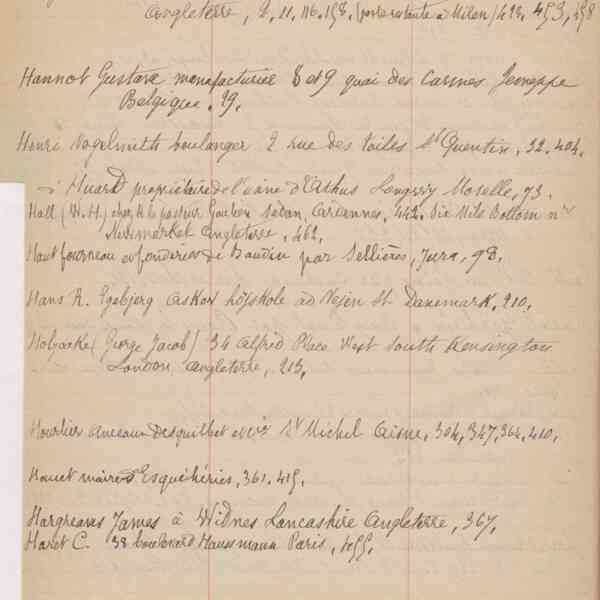 Angleterre, 2, 11, 116, 158, (poste restante à Milan) 428, 453, 458
Hannot Gustave manufacturier 8 et 9 quai des Carmes Jemeppe
Belgique, 29,
Henri Vogelmith boulanger 2 rue des toiles St Quentin, 32, 404,
Huard propriétaire de l'usine d'Athus Longwy Moselle, 73,
Hall (W. H.) chez M. le pasteur Goulden Sedan, Ardennes, 442. Six Mile Bottom nr
Newmarket Angleterre, 462,
Haut fourneau et fonderies de Baudin par Sellières, Jura, 98,
Hans R. Egebjerg Askov höjskole ad Vejen St Danemark, 210,
Holyoake (George Jacob) 34 Alfred Place West South Kensington
London, Angleterre, 213,
Hourlier St Michel Aisne, 304, 347, 364, 410,
Houet maire d'Esquéhéries, 361, 415,
Hargreaves James à Widnes Lancashire Angleterre, 367,
Haret C. 38 boulevard Haussmann Paris, 455,